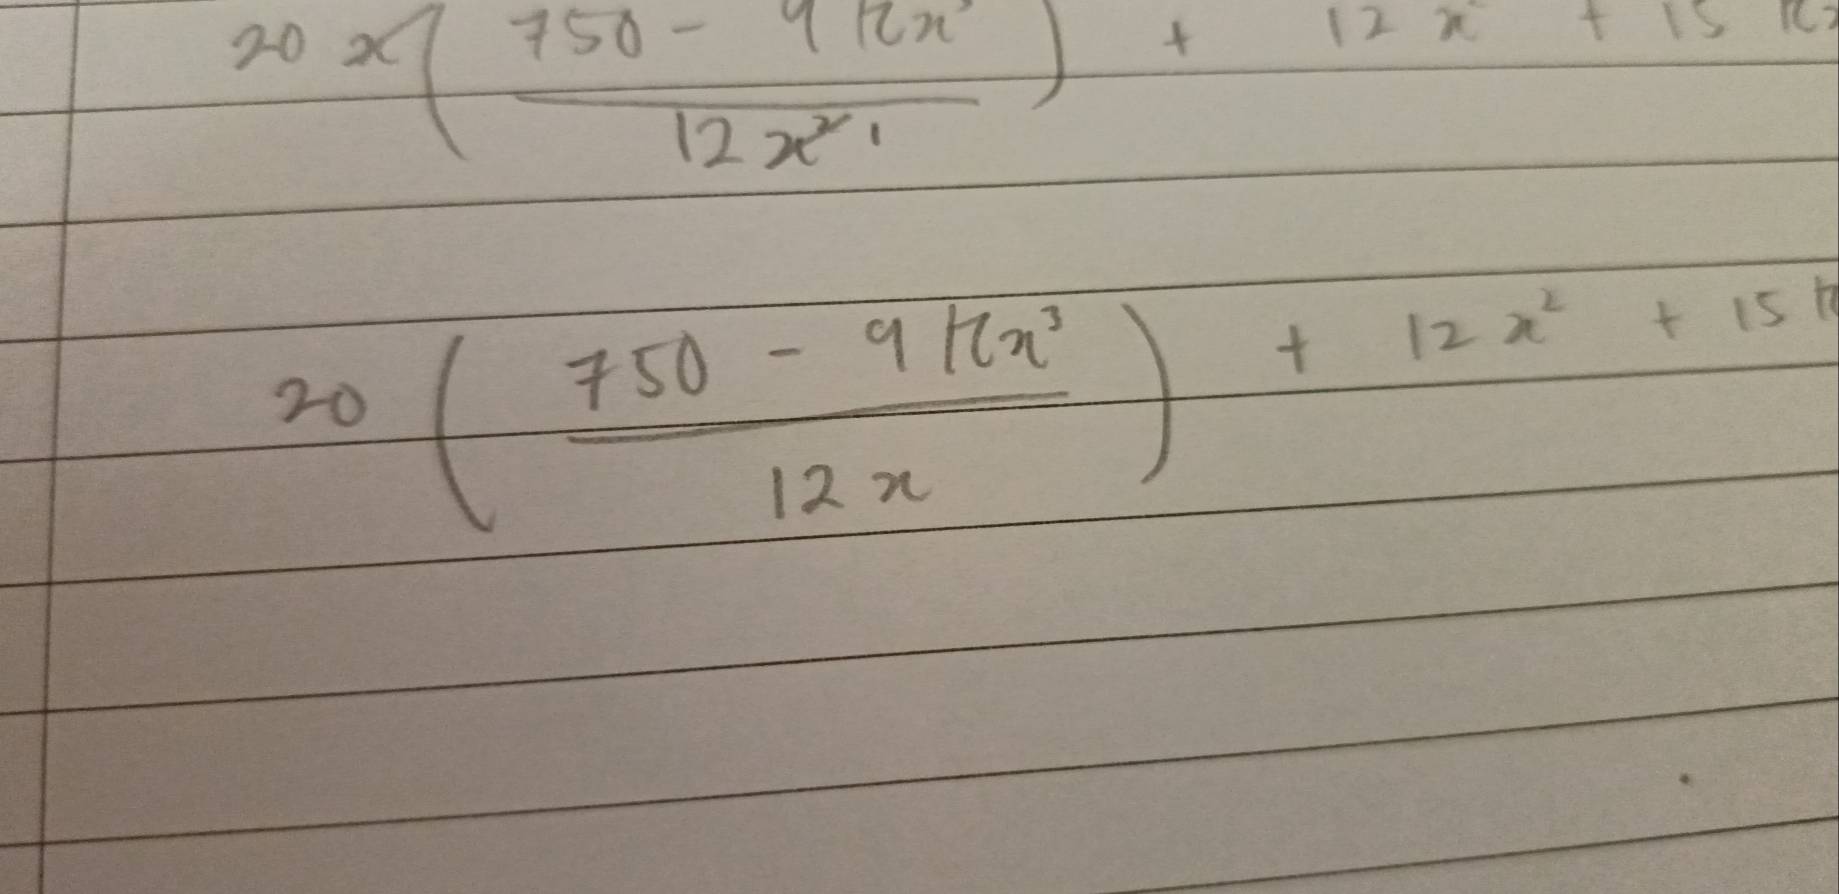 20x(750 - 9πx³ / 12x²) + 12x² + 15π
20(750 - 9πx³ / 12x) + 12x² + 15π